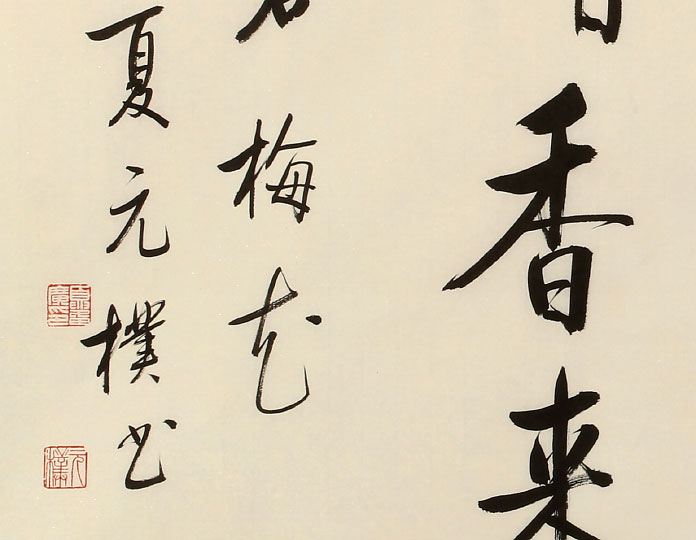 香来
梅花
夏元樸书
元樸